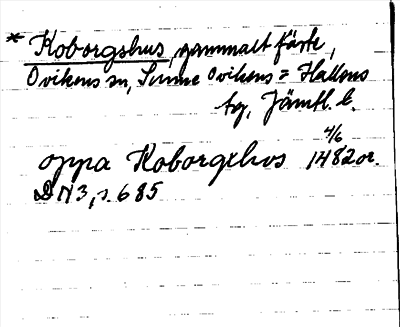 * Koborgshus, gammalt fäste,
Ovikens sn, Sunne Ovikens o Hallens
tg, Jämtl. l.
4/6
oppa Koborgxhws 1482 or.
DN 3, s. 685